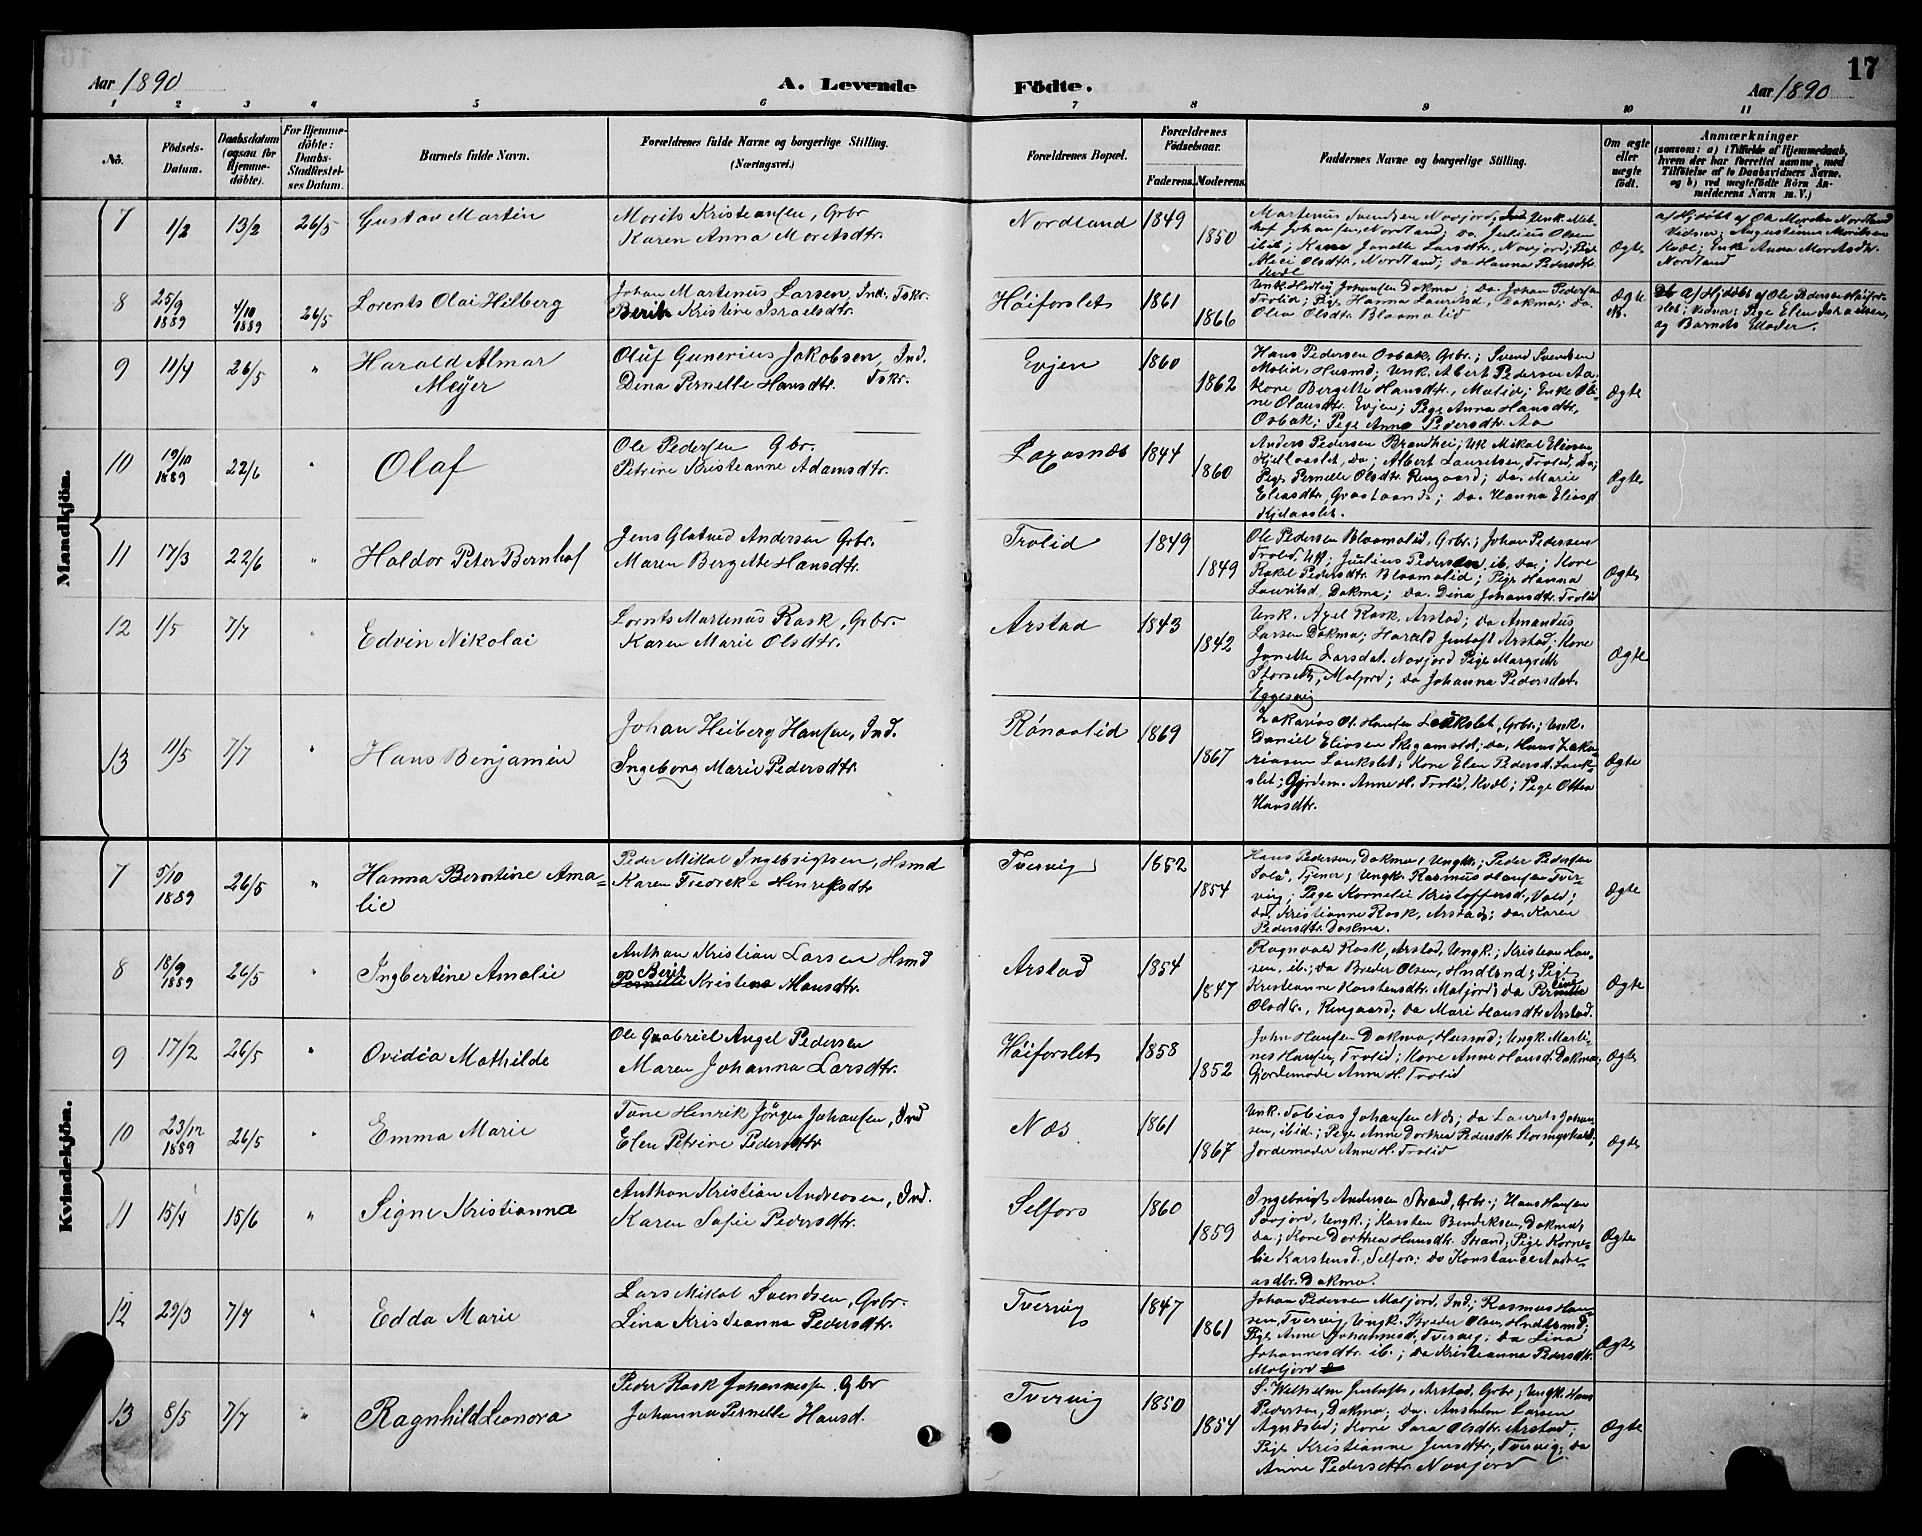 Aar 1890
A. Levende
Födte.
Aar 1890
17
1 2 3 4 5 6 7 8 9 10 11
No.
Födsels-Datum.
Daabsdatum (ogsaa for Hjemmedöbte).
For Hjemmedöbte: Daabs-Stadfæstelses Datum.
Barnets fulde Navn.
Forældrenes fulde Navne og borgerlige Stilling.
(Næringsvei.)
Forældrenes Bopæl.
Forældrenes Födselsaar.
Faderens.
Moderens.
Faddernes Navne og borgerlige Stilling.
Om ægte eller uægte födt.
Anmærkninger
(saasom: a) i Tilfælde af Hjemmedaab,
hvem der har forrettet samme, med
Tilföielse af to Daabsvidners Navne.
og b) ved uægtefödte Börn An-
melderens Navn m. V.)
Mandkjön.
7 1/2 13/2 26/5 Gustav Martin
Morits Kristeansen, Grbr
Karen Anna Moritsdtr.
Nordland 1849 1850
Martenus Svendsen Novjord; Unk. Met-
hof Johansen, Nordland; da Julius Olsen
ibid; Kone Janette Larsdtr, Novjord; Pige
Alice Olsdtr. Nordland; da Hanna Pedersdtr.
Kvæl
Ægte
af Hjdöbt af Ole Morten Nordland
Vidner: Augustinus Moritsen
Kvæl; Enke Anna Moritsdtr.
Nordland
8 25/9 1889 4/10 1889 26/5 Lorents Olai Hilberg
Johan Martenus Larsen, Ind. Fskr.
Berit Kristine Israelsdtr.
Höiforslet 1861 1866
Unk. Hedley Johansen Dokmo; da Johan Pedersen
Trolid; Pige Hanna Lauritsd, Dokmo; da
Olea Olsdtr. Bloamolid
Ægte
af Hjdöbt af Ole Pedersen Höifor-
slet; Vidner: Pige Elen Israelsen,
og Barnets Moder.
9 11/4 26/5 " Harald Almar
Meyer
Oluf Gunerius Jakobsen, Ind.
Dina Pernelle Hansdtr. Fskr.
Evjen 1860 1862
Hans Pedersen Osbak, Grbr.; Svend Svendsen
Molid, Husmd; Unk. Albert Pedersen Aa.
Kone Bergette Hansdtr, Molid; Enke Oli-
ne Olausdtr. Evjen; Pige Anna Hansdtr,
Osbak; Pige Anne Pedersdtr. Aa
Ægte
10 19/10 1889 22/6 " Olaf
Ole Pedersen Gbr.
Petrine Kristianne Adamsdtr.
Laxosnæs 1844 1860
Anders Pedersen Brandhei; Uk Mikal Eliasen
Kjellaaslet, da; Albert Lauritsen, Trolid, da;
Pige Pernelle Olsdtr Rengaard; da. Marie
Eliasdtr, Graataand; da. Hanna Eliasd
Kjelaaslet.
Ægte
11 17/3 22/6 " Haldor Peter Bernhof
Jens Glatved Andersen Grbr.
Maren Bergette Hansdtr.
Trolid 1849 1849
Ole Pedersen Bloamolid, Grbr.; Johan Pedersen
Trolid, Uk; Julius Pedersen ib. da.; Kone
Rakel Pedersdtr Bloamolid; Pige Hanna
Lauritsd, Dokmo; da. Dina Johansdtr. Trolid
Ægte
12 1/5 7/7 " Edvin Nikolai
Lornts Martenus Rask, Grbr.
Karen Marie Olsdtr.
Arstad 1843 1842
Unk. Axel Rask, Arstad; da Amandus
Larsen Dokmo; Harald Jentoft Arstad; Kone
Janette Larsdat. Novjord Pige Margreth
Storseth, Moljord; da Johanna Pedersdat.
Eggesvig
Ægte
13 11/5 7/7 " Hans Benjamin
Johan Heiberg Hansen, Ind.
Ingeborg Marie Pedersdtr.
Rönaalid 1869 1867
Zakarias Ol. Hansen Laukslet, Grbr.; Unk.
Daniel Eliasen Skegamold; da, Hans Zaka-
riasen Laukslet; Kone Elen Pedersd. Lauk-
slet; Gjordsm. Anne H. Trolid, Kvæl; Pige Ottea
Hansdtr.
Ægte
Kvindekjön.
7 5/10 1889 26/5 " Hanna Berntine Ama-
lie
Peder Mikal Ingebrigtsen, Hsmd
Karen Fredrike Henriksdtr
Tvervig 1852 1854
Hans Pedersen, Dokmo, Ungk.; Peder Pedersen
Solö, Tjener; Ungk. Rasmus Hansen Tver-
vig; Pige Kornelie Kristoffersd, Vold;
da. Kristianne Rask, Arstad; da. Karen
Pedersdtr. Dokmo.
Ægte
8 18/9 1889 26/5 " Ingbertine Amalie
Anthon Kristian Larsen Hsmd
Berit
Pernelle Kristine Hansdtr.
Arstad 1854 1847
Ragnvald Rask, Arstad, Ungk.; Kristian Han-
sen, ib.; da Breder Olsen, Hndland; Pige
Kristianne Karstensdtr. Moljord; da Pernelline
Olsdtr., Rengaard; da Mari Hansdtr Arstad.
Ægte
9 17/2 26/5 " Ovidia Mathilde
Ole Gabriel Angel Pedersen
Maren Johanna Larsdtr.
Höiforslet 1858 1852
John Hansen Dokmo, Husmd; Ungk. Marti-
nes Hansen, Trolid; Kone Anne Hansd. Dokmo;
Gjordemode Anne H. Trolid
Ægte
10 23/12 1889 26/5 " Emma Marie
Tone Henrik Jörgen Johansen, Ind
Elen Petrine Pedersdtr
Næs 1861 1867
Unk. Tobias Johansen Næs; da Laurets Johan-
sen, ibid.; Pige Anne Dorthea Pedersdtr.
Jordemoder Anne H. Trolid
Ægte
11 15/4 15/6 " Signe Kristianna
Anthon Kristian Andreasen, Ind.
Karen Sofie Pedersdtr.
Selfors 1860 1859
Ingebrigt Andersen Strand, Grbr.; Hans Hansen
Sovjord, Ungk.; Karsten Bendiksen, Dokmo,
da; Kone Dorthea Hansdtr. Strand; Pige Korne-
lie Karstensd, Selfors; da Konstance Andre-
asdtr. Dokmo.
Ægte
12 29/3 7/7 " Edda Marie
Lars Mikal Svendsen, Grbr.
Lina Kristianna Pedersdtr.
Tvervig 1847 1861
Johan Pedersen Moljord, Ind; Rasmus Han-
sen, Tvervig, Ungk. Breder Olsen, Hndland;
Pige Anne Johannesd, Tvervig; da Lina
Johannesdtr. ib.; da Kristianna Pedersdtr.
Moljord
Ægte
13 8/5 7/7 " Ragnhild Leonora
Peder Rask Johannessen, Gbr
Johanna Pernelle Hansd.
Tvervig 1850 1854
S. Wilhelm Jentofts, Arstad, Grbr; Ungk. Hans
Pedersen, Dokmo; da. Anshelm Larsen
Kone Sara Olsdtr. Arstad;
Pige Kristianne Jensdtr, Tvervig; da
Anne Pedersdtr. Novjord
Ægte